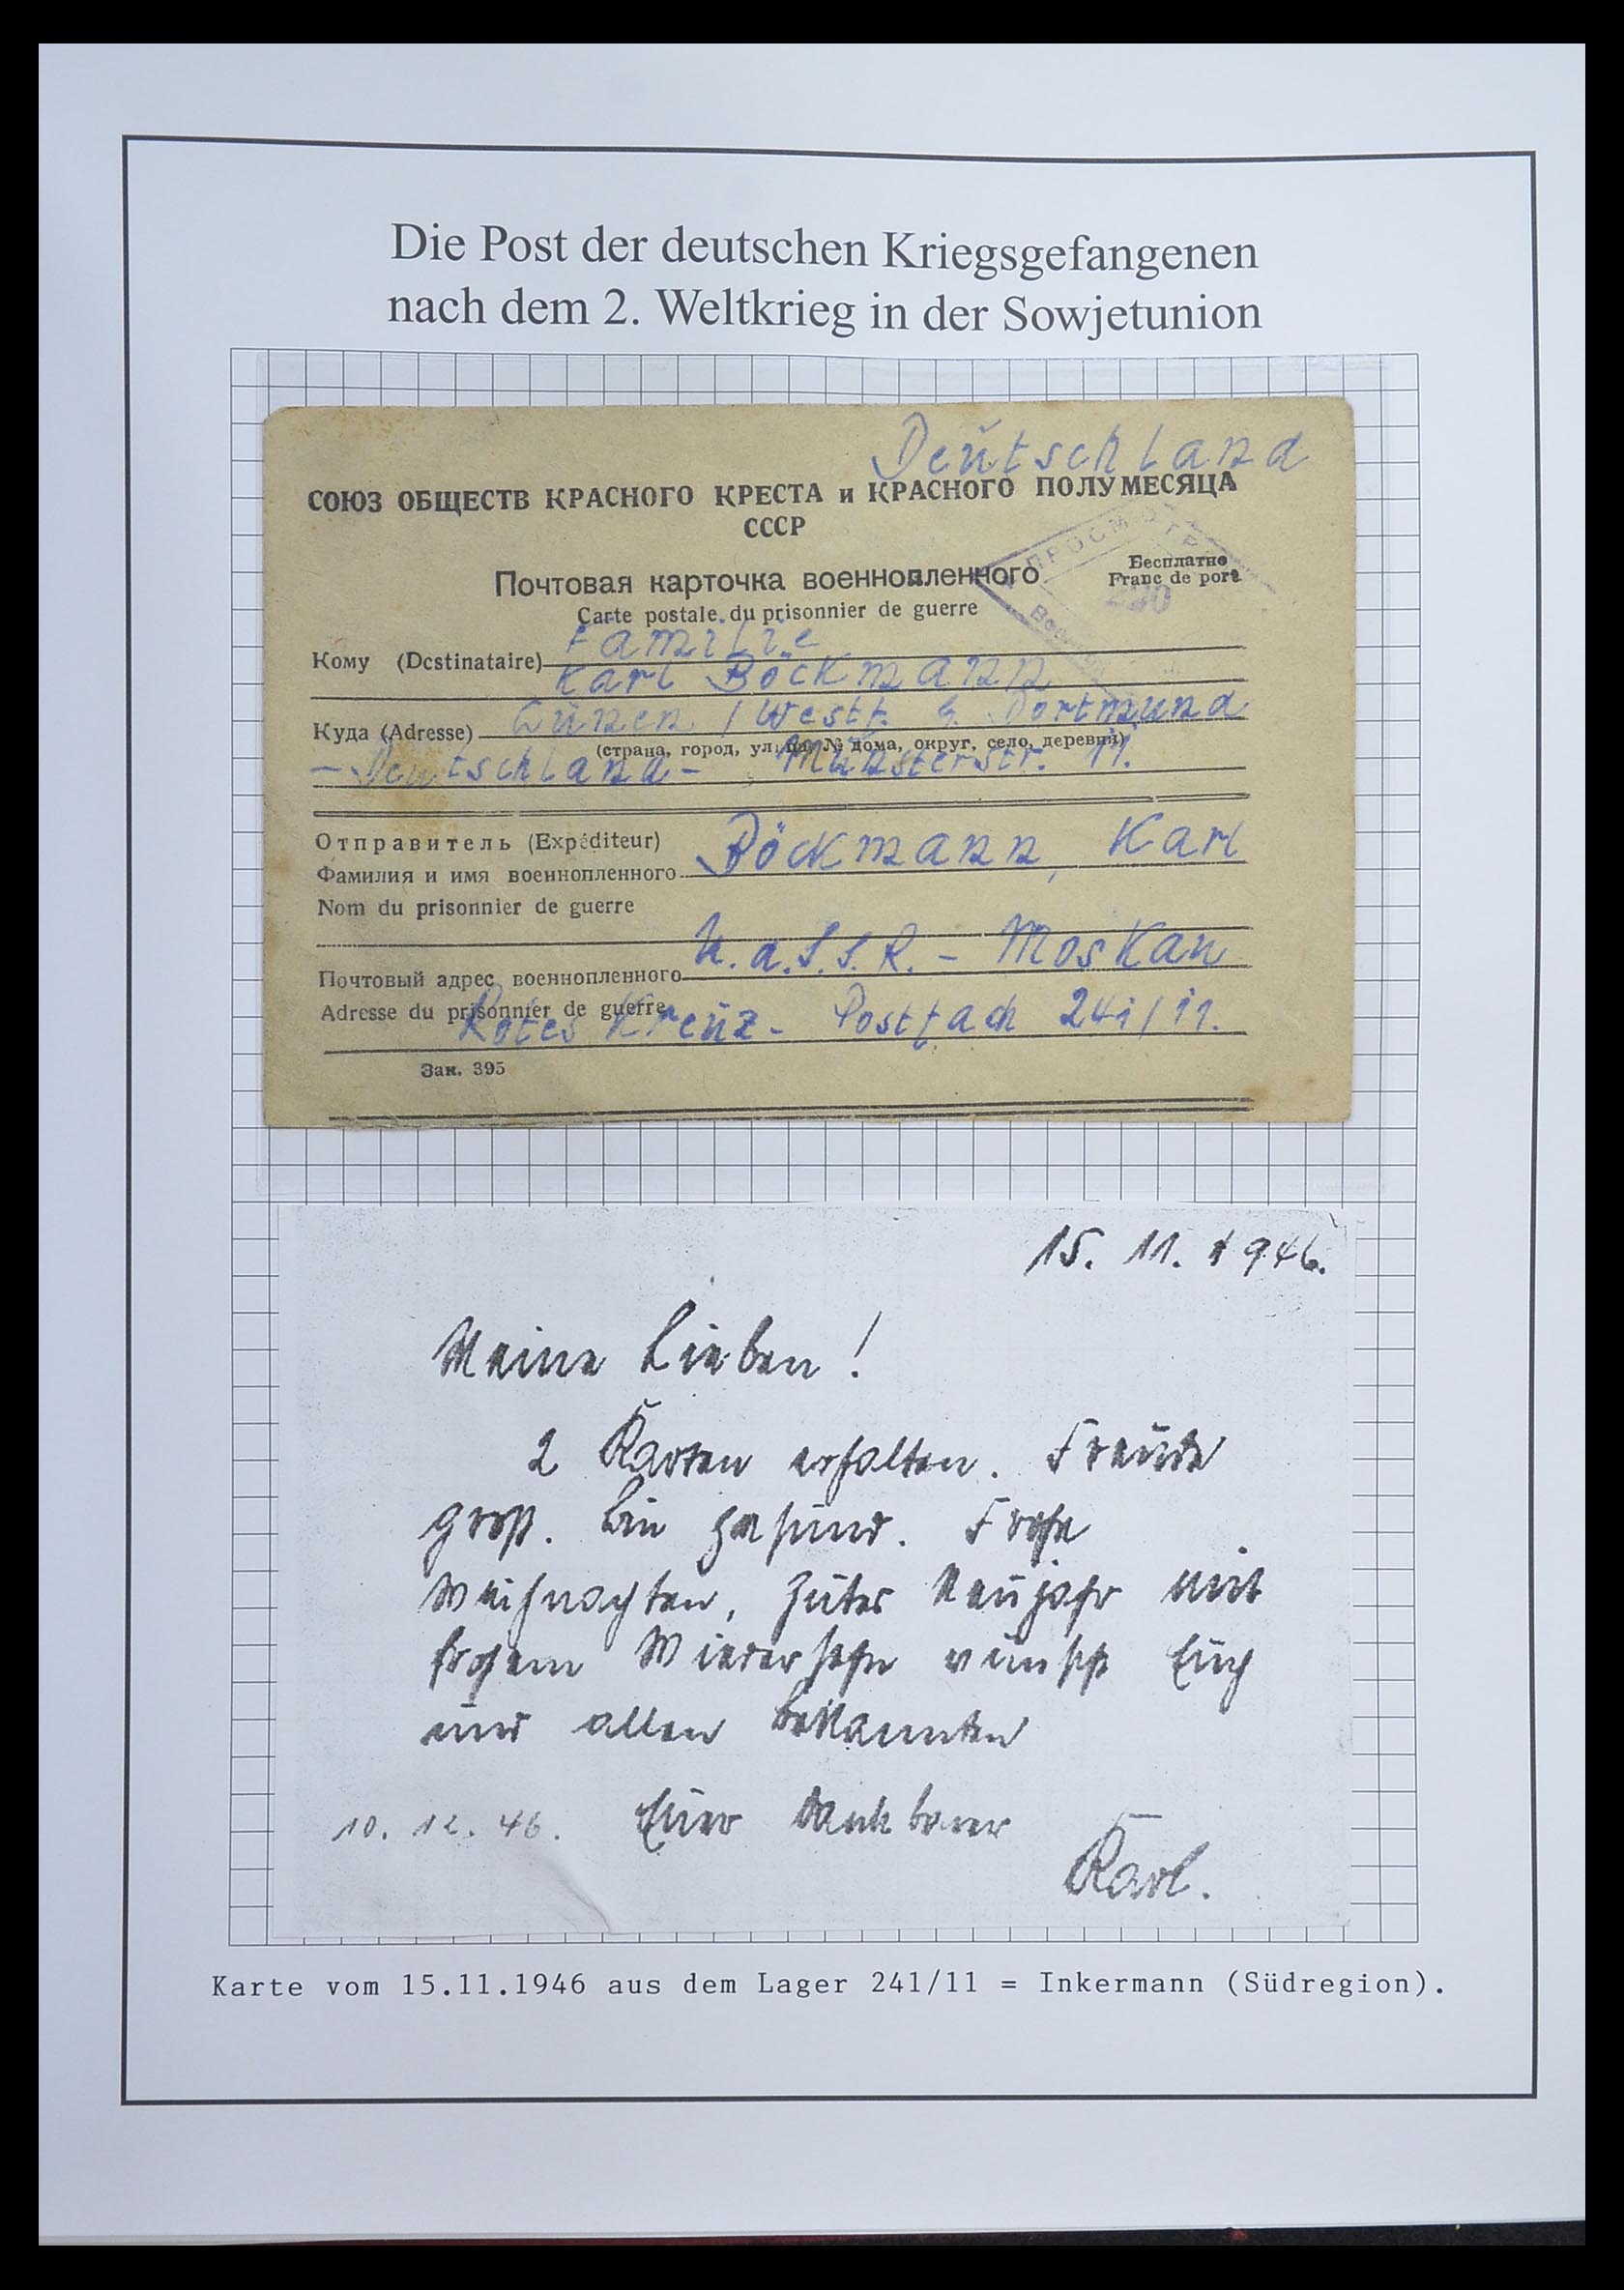 Die Post der deutschen Kriegsgefangenen
nach dem 2. Weltkrieg in der Sowjetunion
Deutschland
СОЮЗ ОБЩЕСТВ КРАСНОГО КРЕСТА и КРАСНОГО ПОЛУМЕСЯЦА
СССР
ПРОСМОТРЕ
Бесплатно
Franc de port
Почтовая карточка военнопленного
Carte postale du prisonnier de guerre
Кому (Destinataire) Familie
Karl Böckmann
Куда (Adresse) Lünen / Westf. b. Dortmund
(страна, город, улица, № дома, округ, село, деревня)
- Deutschland - Münsterstr. 17.
Отправитель (Expéditeur)
Фамилия и имя военнопленного Böckmann, Karl
Nom du prisonnier de guerre
Почтовый адрес военнопленного U.d.S.S.R. - Moskau
Adresse du prisonnier de guerre
Rotes Kreuz - Postfach 241/11.
Зак. 395
15. 11. 1946.
Meine Lieben!
2 Karten erhalten. Freude
groß. Bin gesund. Frohe
Weihnachten, gutes Neujahr mit
frohem Wiedersehn wünscht Euch
und allen Bekannten
10. 12. 46. Euer dankbarer
Karl.
Karte vom 15.11.1946 aus dem Lager 241/11 = Inkermann (Südregion).